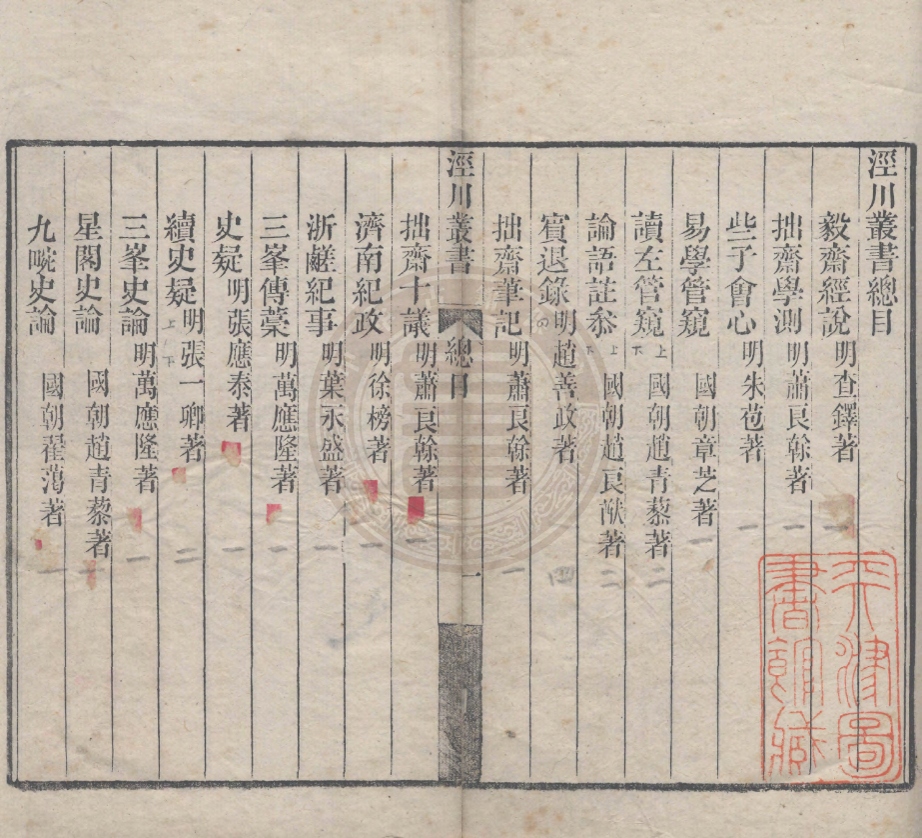 涇川叢書總目
毅齋經說 明查鐸著 一
拙齋學測 明蕭良榦著 一
些子會心 明朱苞著 一
易學管窺 國朝章芝著 一
讀左管窺 上下 國朝趙青藜著 二
論語註參 上下 國朝趙良猷著 二
賓退錄 四 明趙善政著 四
拙齋筆記 明蕭良榦著 一
涇川叢書 總目 一
拙齋十議 明蕭良榦著 一
濟南紀政 明徐榜著 一
浙鹺紀事 明葉永盛著 一
三峯傳藁 明萬應隆著 一
史疑 明張應泰著 一
續史疑 上下 明張一卿著 二
三峯史論 明萬應隆著 一
星閣史論 國朝趙青藜著 一
九畹史論 國朝翟藹著 一
天津圖
書館藏